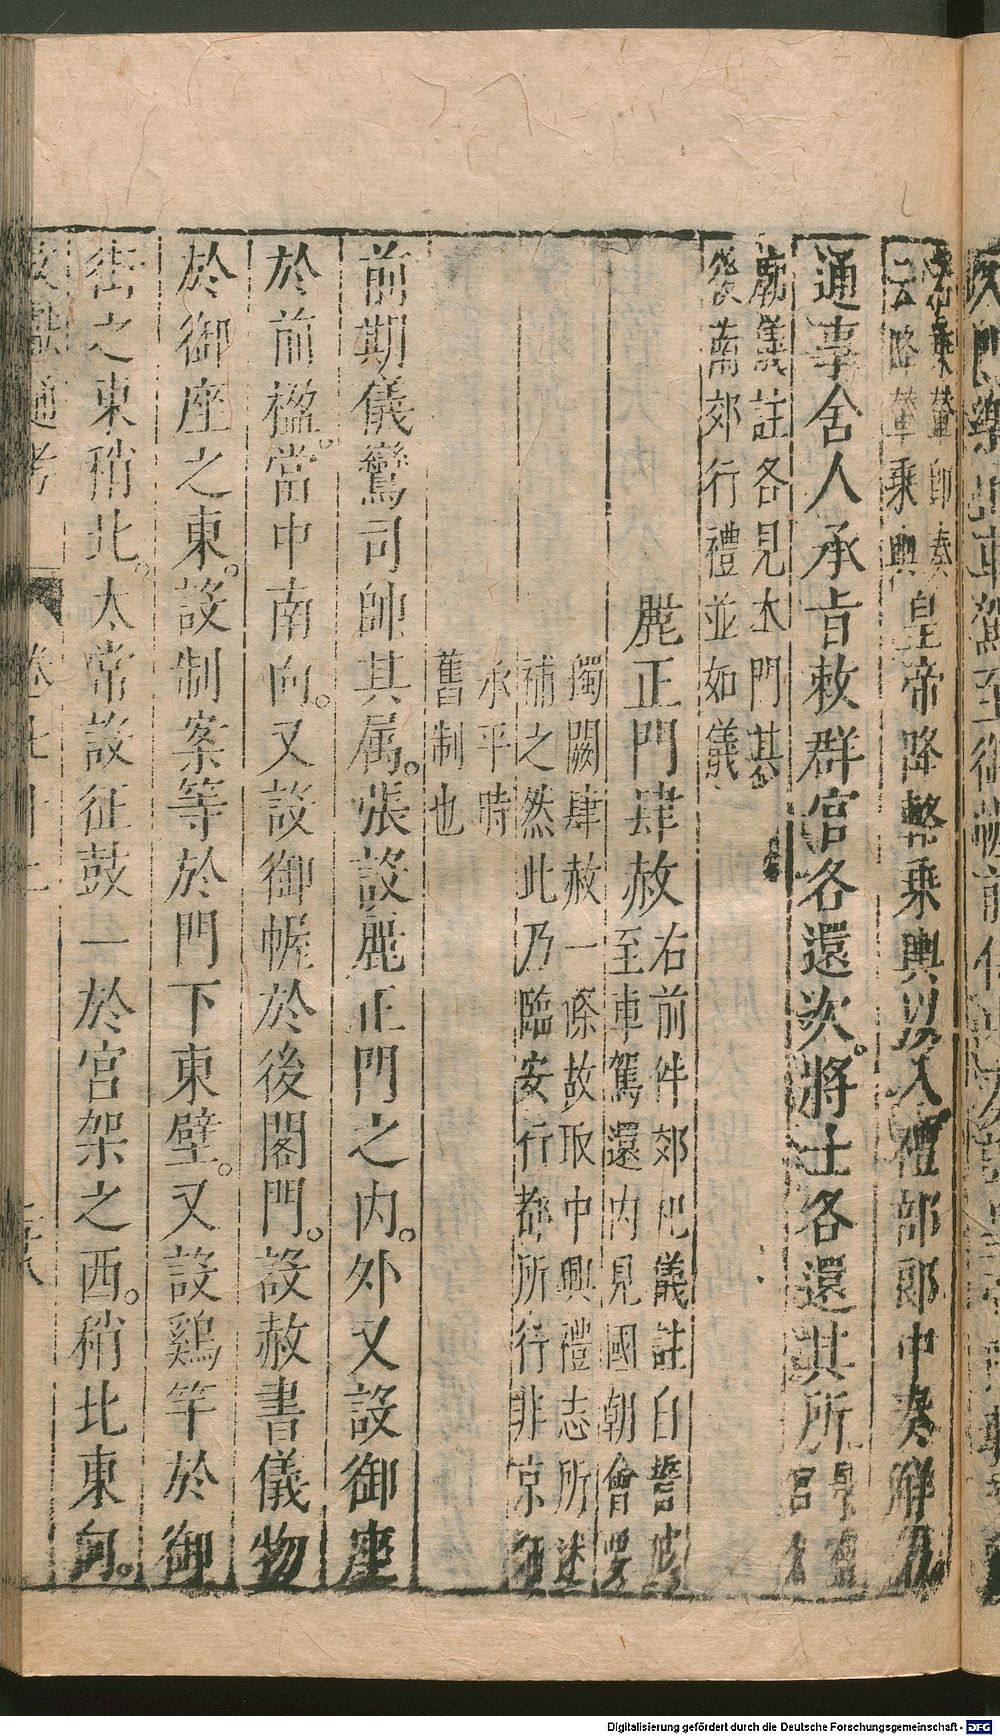 若乘輦即奏
云降輦乘輿皇帝降輦乘輿以入禮部郎中奏解嚴
通事舍人承旨敕群官各還次將士各還其所
廟儀註各見本門其
後蔪郊行禮並如儀
麗正門肆赦右前件郊祀儀註自誓戒
至車駕還內見國朝會要
獨闕肆赦一條故取中興禮志所述
補之然此乃臨安行都所行非京師
承平時
舊制也
前期儀鸞司帥其属張設麗正門之內外又設御座
於前楹當中南向又設御幄於後閣門設赦書儀物
於御座之東設制案等於門下東壁又設鷄竿於御
街之東稍北太常設鉦鼓一於宮架之西稍北東向
文獻通考
卷七十二
Digitalisierung gefördert durch die Deutsche Forschungsgemeinschaft - DFG